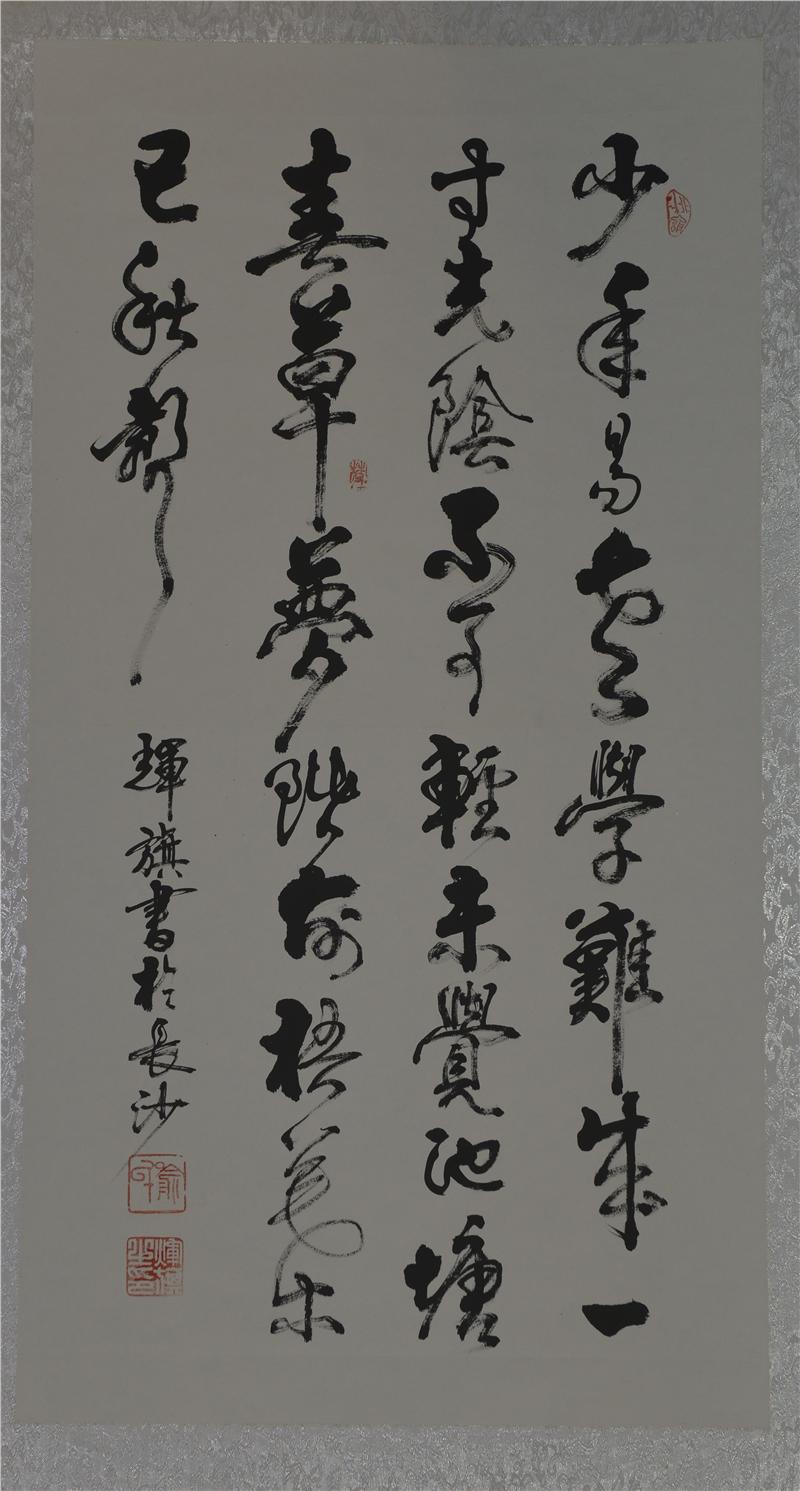 少年易老學難成一
寸光陰不可輕未覺池塘
春草夢階前梧葉
已秋聲
輝旗書於長沙